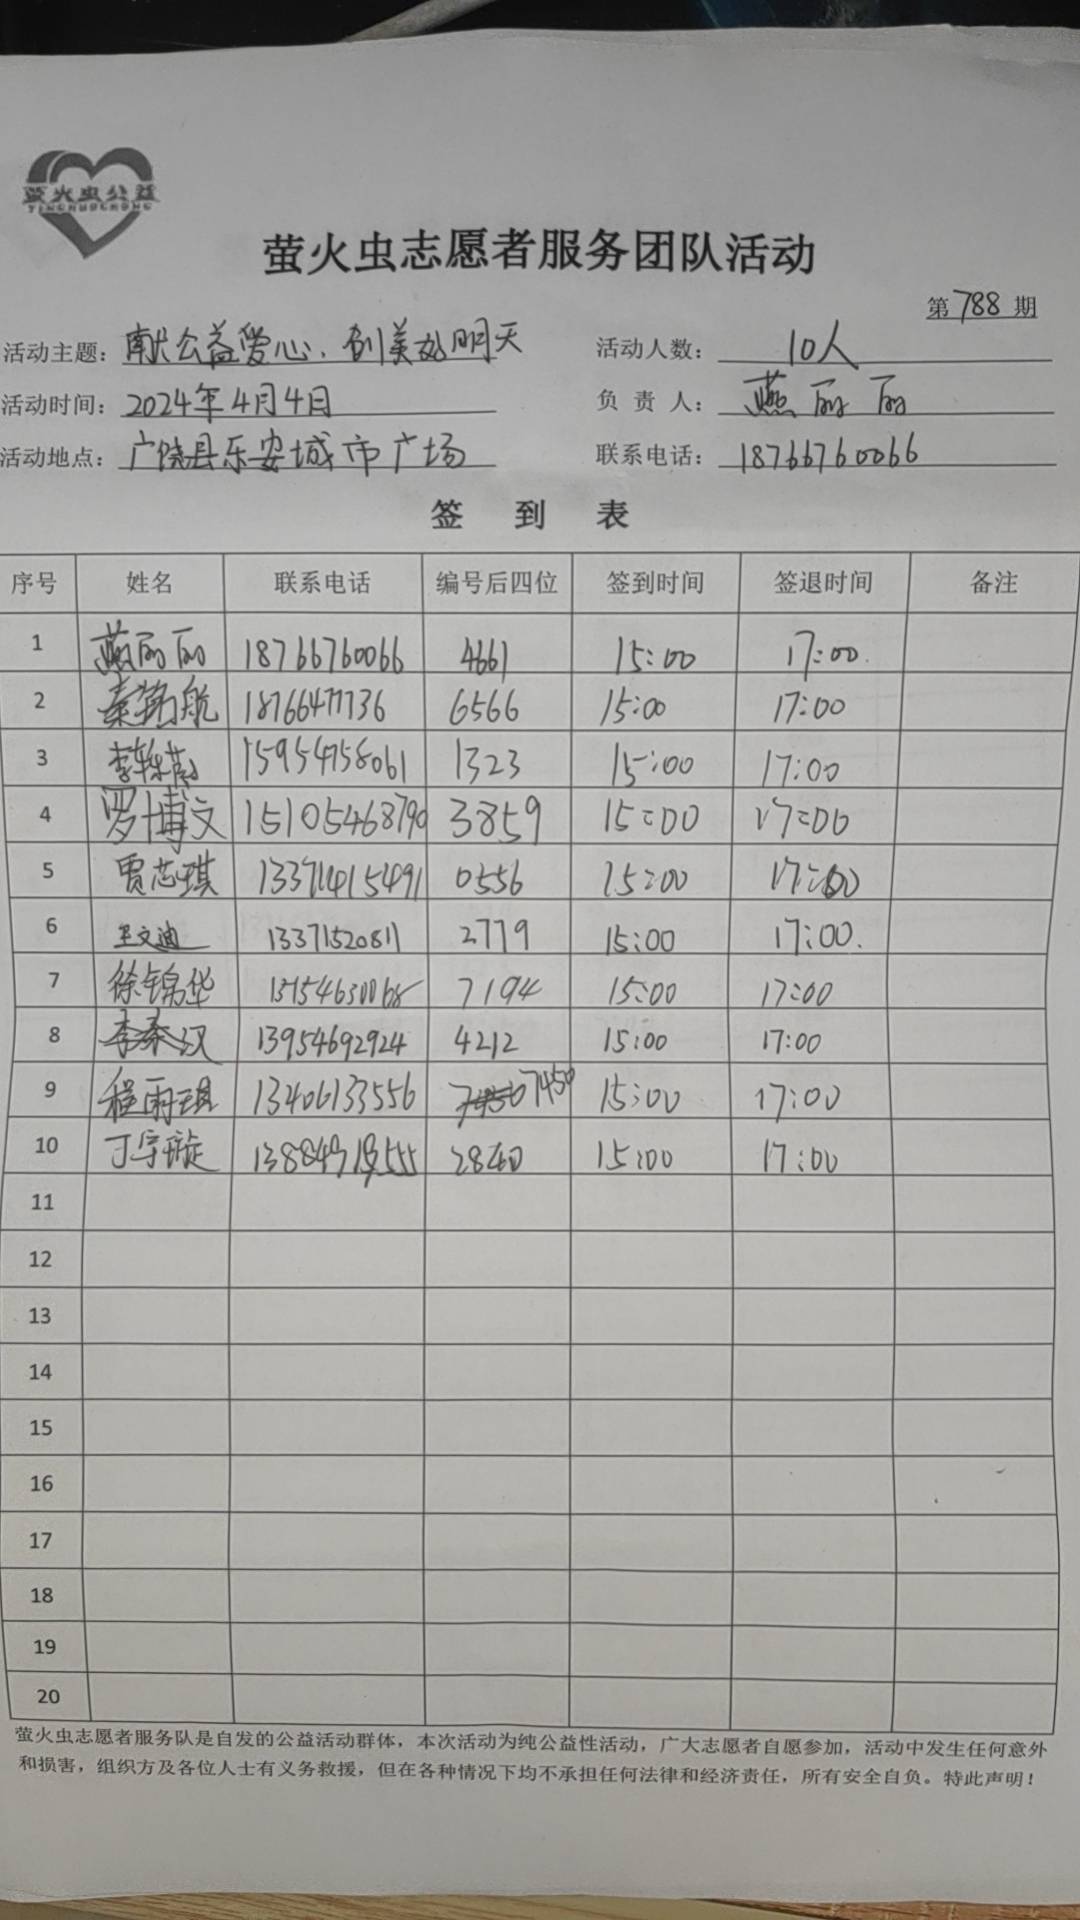 萤火虫公益
YINGHUOCHONG
萤火虫志愿者服务团队活动
第 788 期
活动主题：献公益爱心、创美好明天 活动人数：10人
活动时间：2024年4月4日 负责人：燕丽丽
活动地点：广饶县乐安城市广场 联系电话：18766760066
签 到 表
序号 姓名 联系电话 编号后四位 签到时间 签退时间 备注
1 燕丽丽 18766760066 4661 15:00 17:00
2 18766477736 6566 15:00 17:00
3 15954758061 1323 15:00 17:00
4 罗博文 15105468790 3859 15:00 17:00
5 贾芯琪 0556 15:00 17:00
6 王文迪 13371520811 2779 15:00 17:00
7 徐锦华 15154630068 7194 15:00 17:00
8 李秦汉 13954692924 4212 15:00 17:00
9 程雨琪 13406133556 7450 15:00 17:00
10 丁宇璇 2840 15:00 17:00
11
12
13
14
15
16
17
18
19
20
萤火虫志愿者服务队是自发的公益活动群体，本次活动为纯公益性活动，广大志愿者自愿参加，活动中发生任何意外
和损害，组织方及各位人士有义务救援，但在各种情况下均不承担任何法律和经济责任，所有安全自负。特此声明！